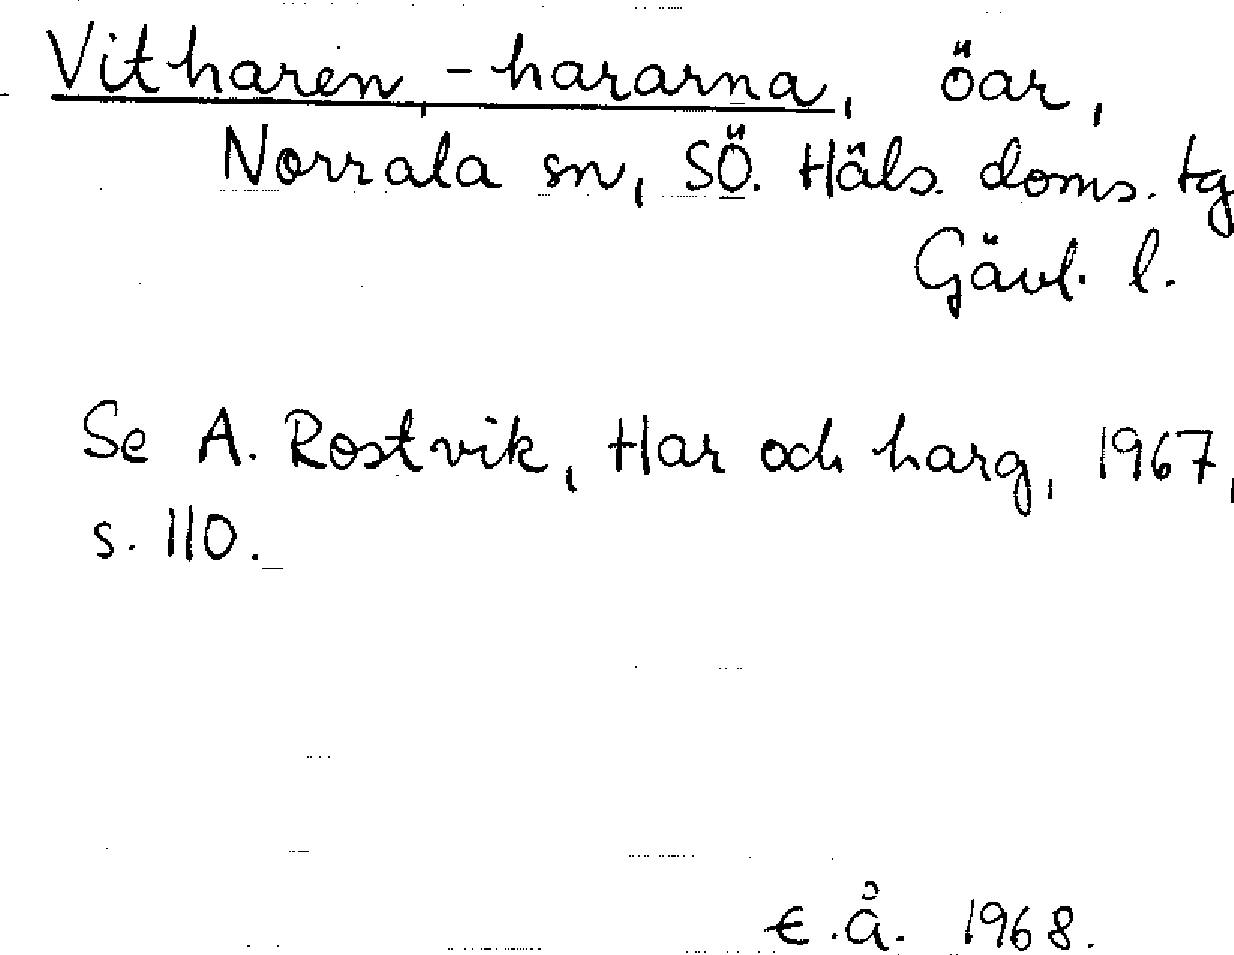 Vitharen, -hararna, öar,
Norrala sn, SÖ. Häls. doms. tg
Gävl. l.
Se A. Rostvik, Har och harg, 1967,
s. 110.
E.Å. 1968.